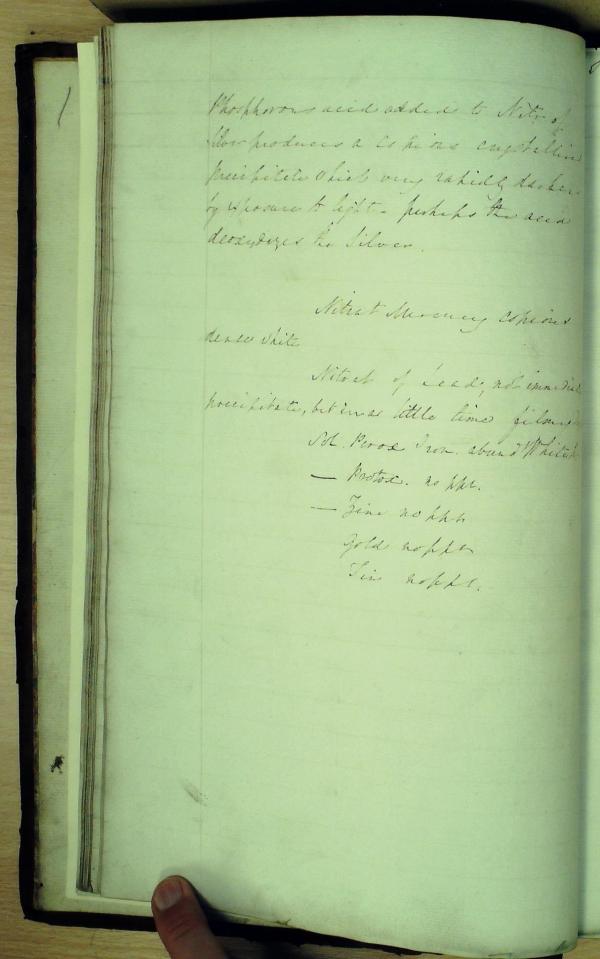 Phosphorous acid added to Nitr of
Silver produces a copious crystalline
precipitate which very rapidly darkens
by exposure to light - perhaps the acid
deoxydizes the Silver.
Nitrat Mercury copious
dense white
Nitrat of Lead, not immediate
precipitate, but in a little time films
Sol. Perox Iron. abund White
— Protox. no ppt.
— Zinc no ppt
Gold no ppt
Tin no ppt.